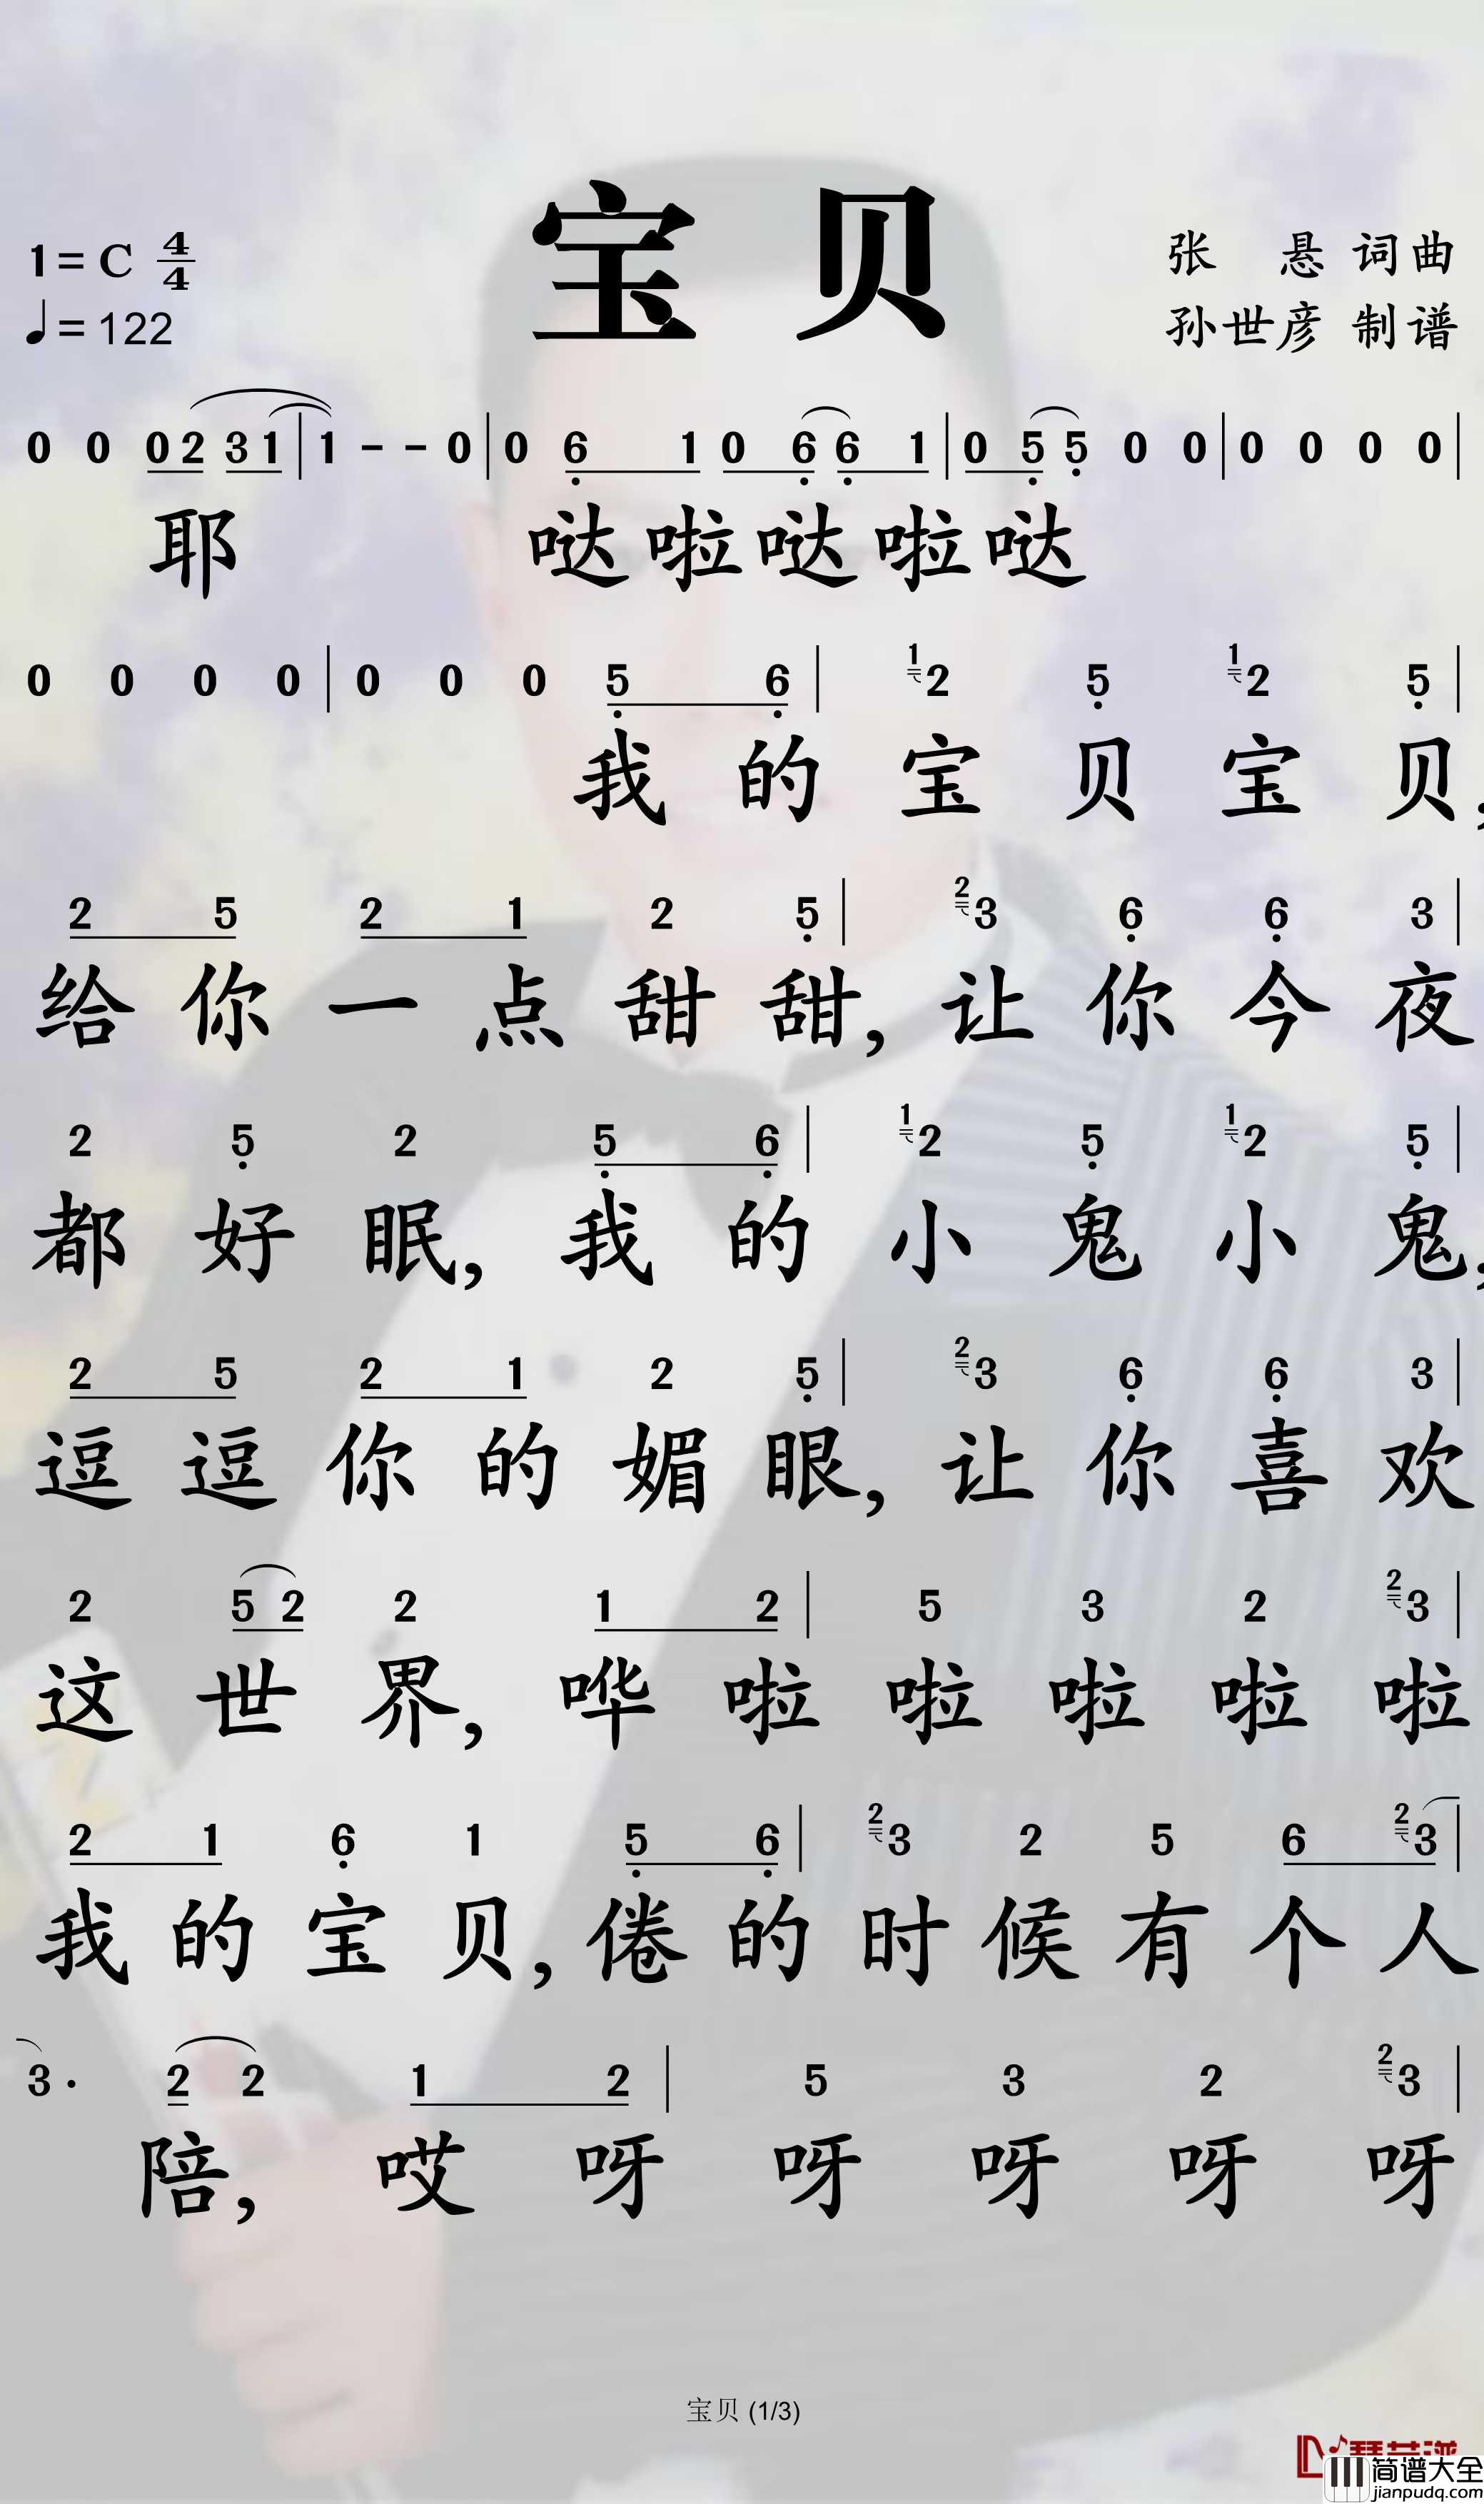 宝贝
1=C 4/4
♩=122
张 悬 词曲
孙世彦 制谱
0 0 0 2 3 1 | 1 - - 0 | 0 6 1 0 6 6 1 | 0 5 5 0 0 | 0 0 0 0 |
耶 哒啦哒啦哒
0 0 0 0 | 0 0 0 5 6 | 1 2 5 1 2 5 |
我的宝贝宝贝,
2 5 2 1 2 5 | 2 3 6 6 3 |
给你一点甜甜,让你今夜
2 5 2 5 6 | 1 2 5 1 2 5 |
都好眠,我的小鬼小鬼,
2 5 2 1 2 5 | 2 3 6 6 3 |
逗逗你的媚眼,让你喜欢
2 5 2 2 1 2 | 5 3 2 2 3 |
这世界,哗啦啦啦啦啦
2 1 6 1 5 6 | 2 3 2 5 6 2 3 |
我的宝贝,倦的时候有个人
3· 2 2 1 2 | 5 3 2 2 3 |
陪,哎呀呀呀呀呀
宝贝 (1/3)
简谱大全
jianpudq.com